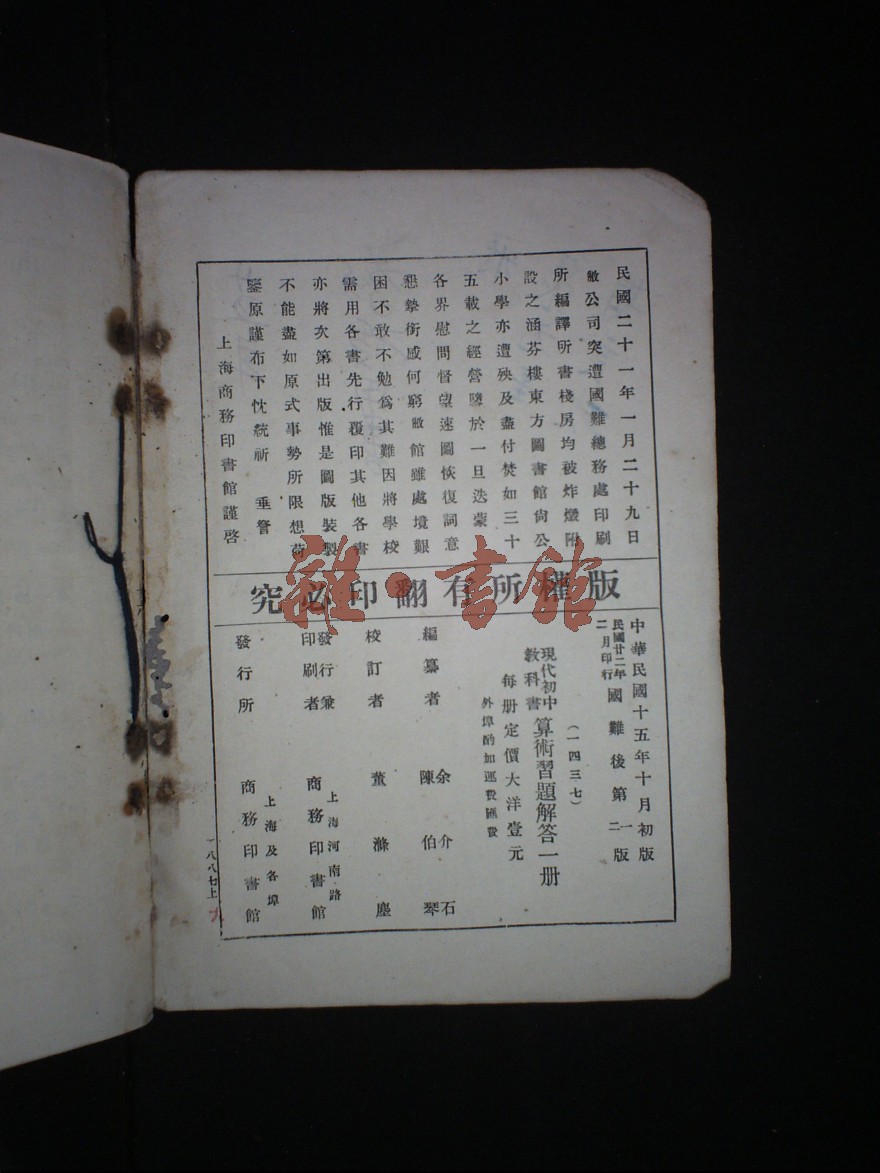 民國二十一年一月二十九日
敝公司突遭國難總務處印刷
所編譯所書棧房均被炸燬附
設之涵芬樓東方圖書館尙公
小學亦遭殃及盡付焚如三十
五載之經營隳於一旦迭蒙
各界慰問督望速圖恢復詞意
懇摯銜感何窮敝館雖處境艱
困不敢不勉爲其難因將學校
需用各書先行覆印其他各書
亦將次第出版惟是圖版裝製
不能盡如原式事勢所限想荷
鑒原謹布下忱統祈 垂詧
上海商務印書館謹啓
版權所有翻印必究
中華民國十五年十月初版
民國廿二年二月印行 國難後第一版
(一四三七)
現代初中教科書 算術習題解答一册
每册定價大洋壹元
外埠酌加運費匯費
編纂者 余介石 陳伯琴
校訂者 董滌塵
發行兼印刷者 上海河南路 商務印書館
發行所 上海及各埠 商務印書館
一八八七上
雜·書館